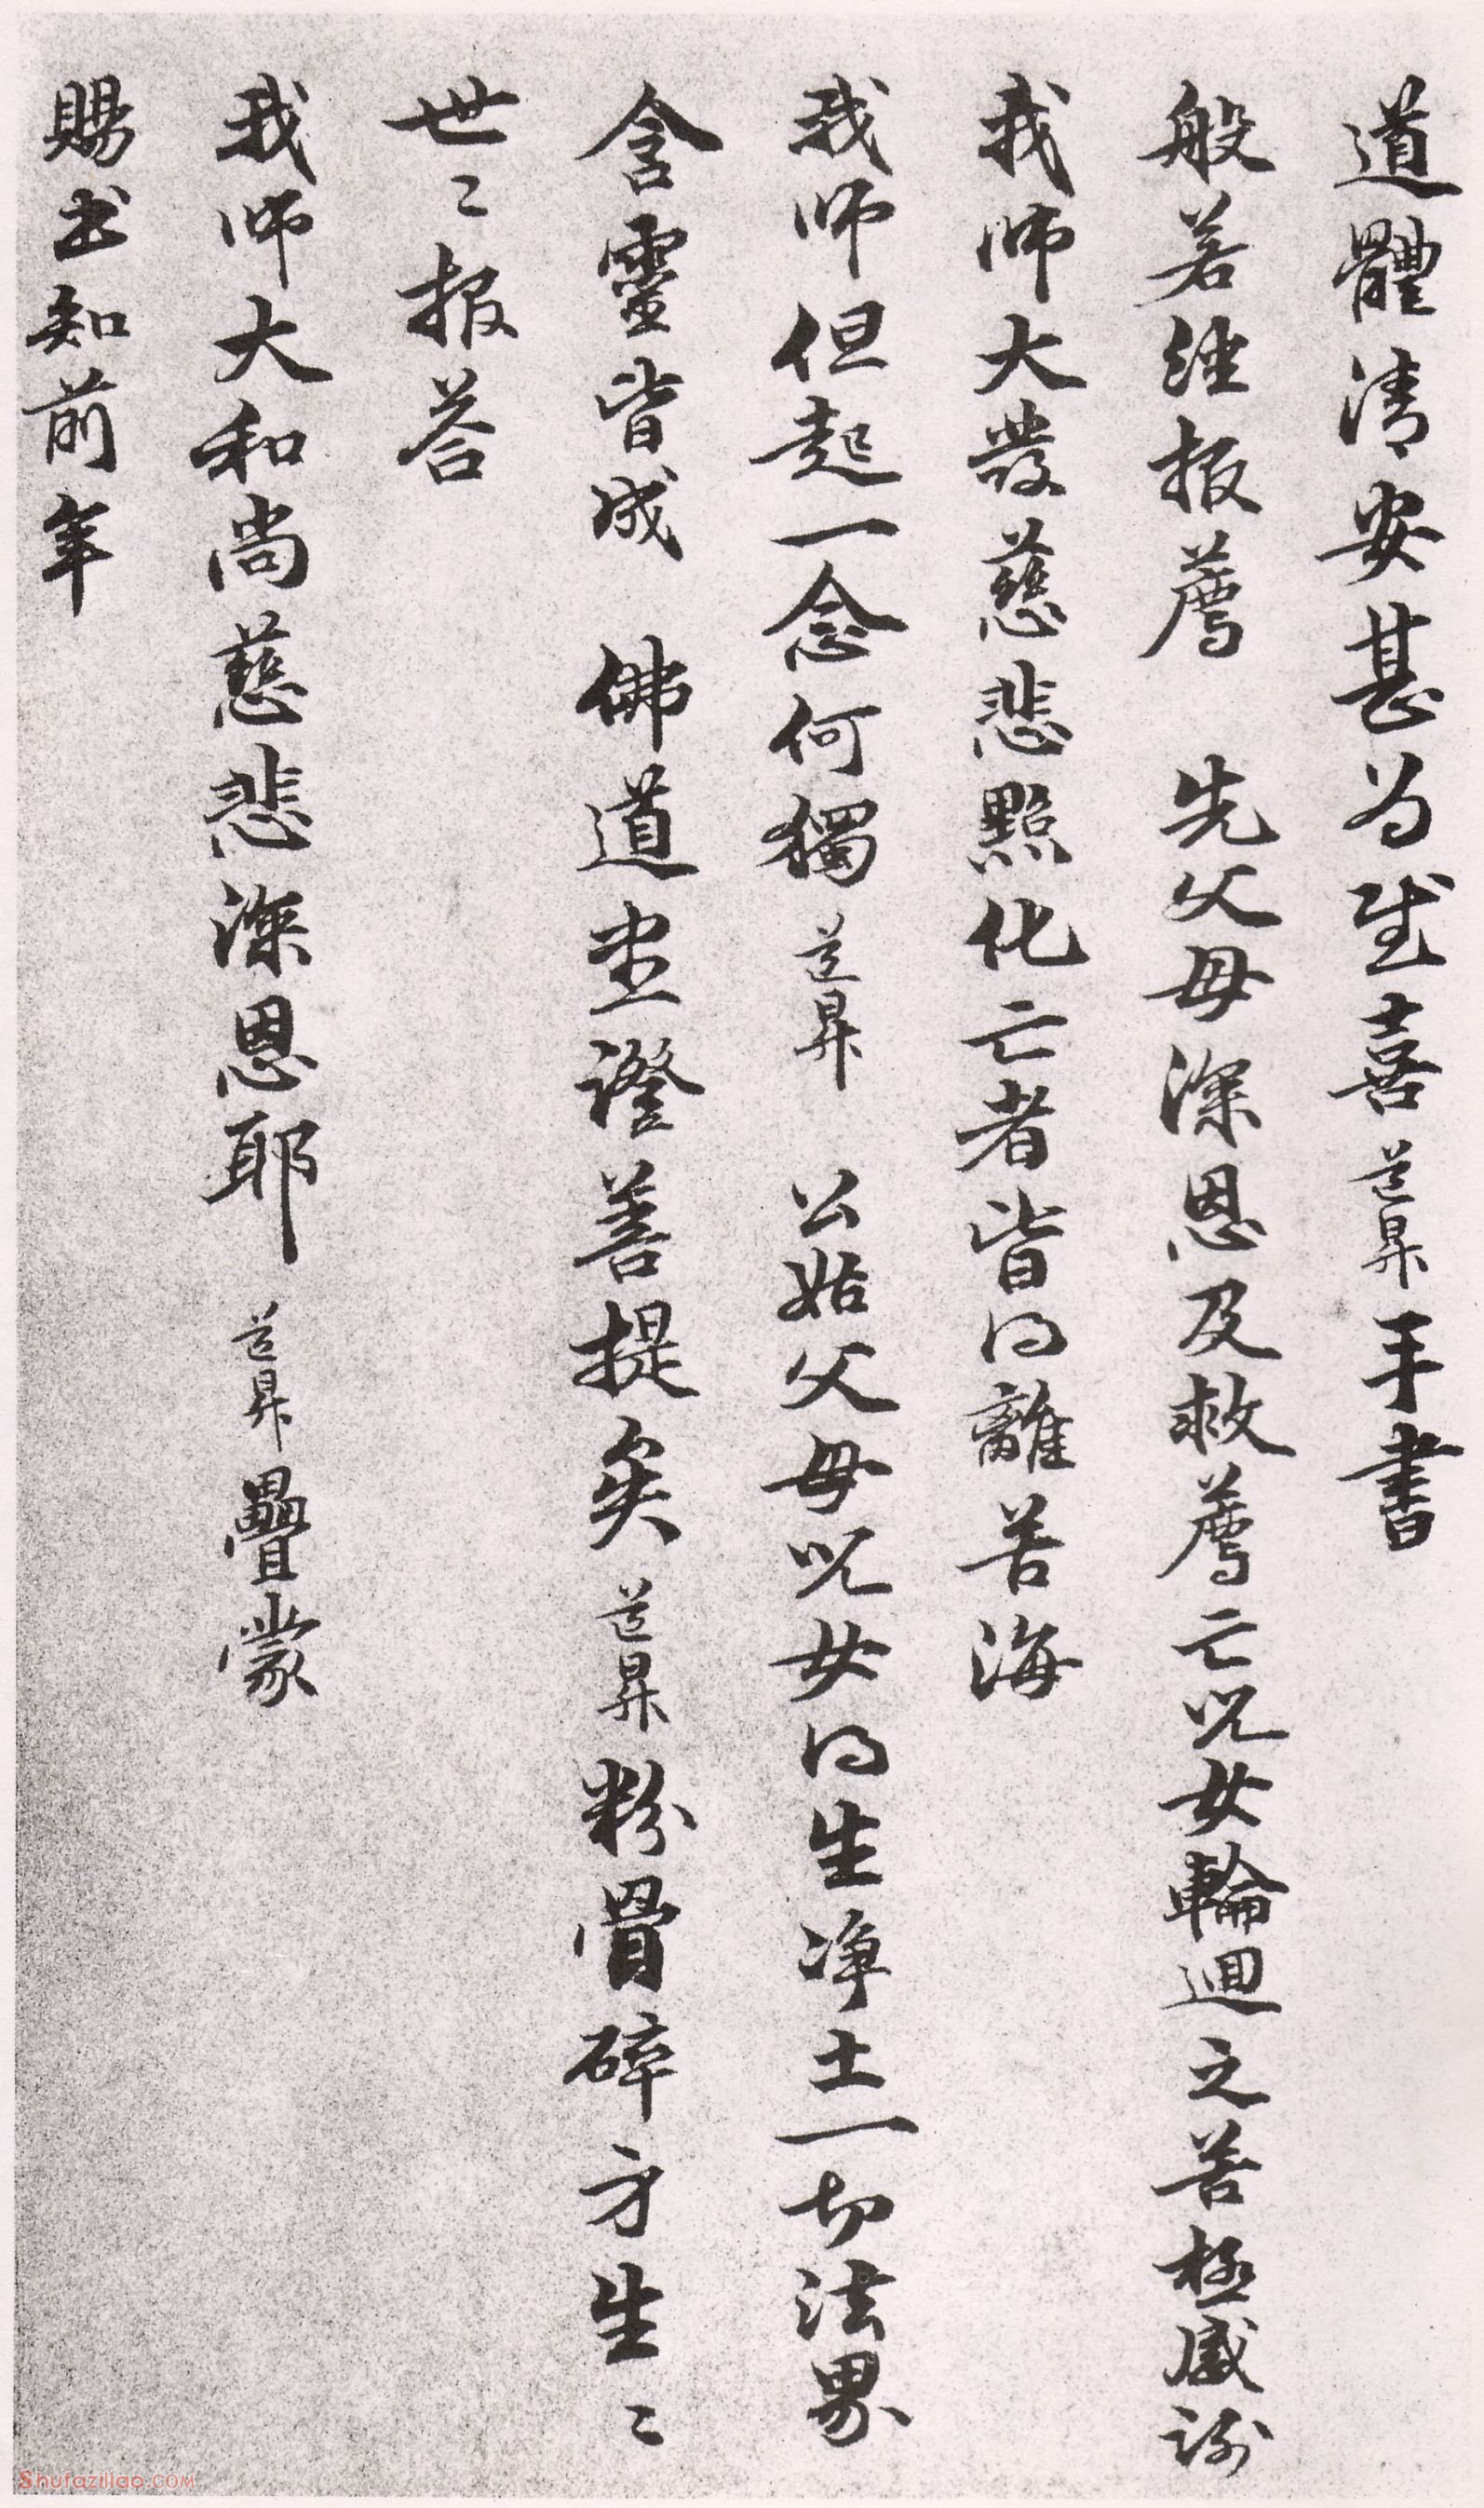 道體清安甚为感喜道昇手書
般若经报薦 先父母深恩及救薦亡兒女輪迴之苦極感谢
我师大發慈悲點化亡者皆得離苦海
我师但起一念何獨道昇 公姑父母兒女得生净土一切法界
含靈皆成 佛道尽證菩提矣道昇粉骨碎身生〻
世〻报荅
我师大和尚慈悲深恩耶 道昇疊蒙
賜书知前年
Shufaziliao.COM